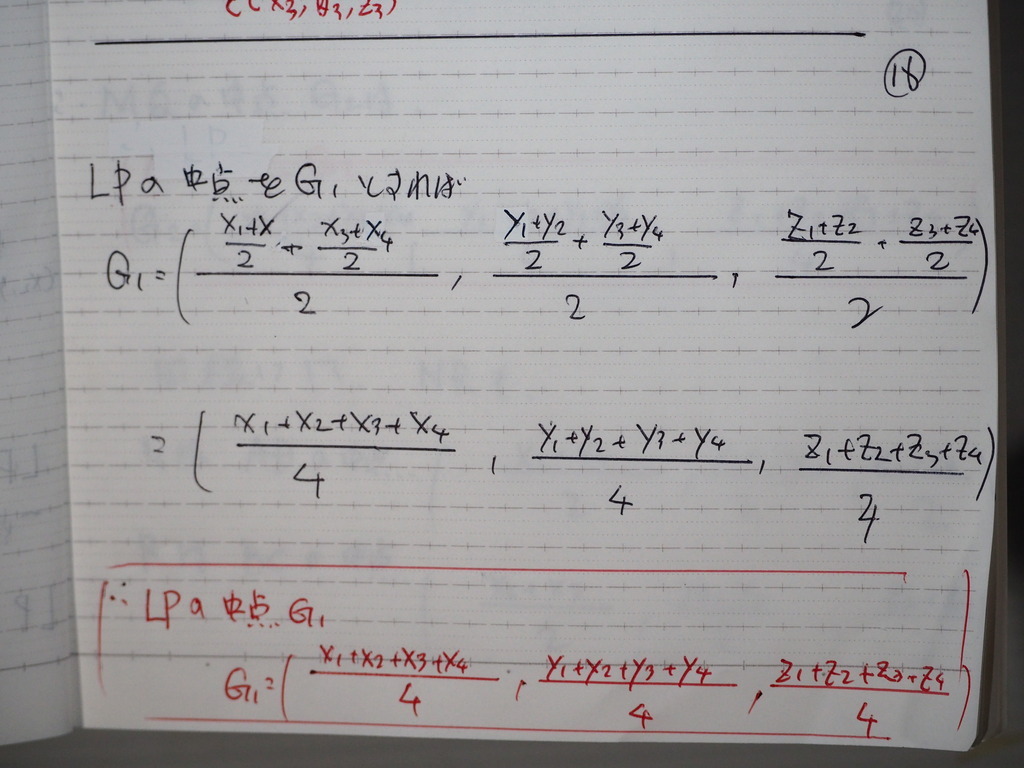 C(x3, y3, z3)
18
LPの中点をG1とすれば
G1=( ((x1+x)/2 + (x3+x4)/2)/2 , ((y1+y2)/2 + (y3+y4)/2)/2 , ((z1+z2)/2 + (z3+z4)/2)/2 )
=( (x1+x2+x3+x4)/4 , (y1+y2+y3+y4)/4 , (z1+z2+z3+z4)/4 )
∴ LPの中点G1
G1=( (x1+x2+x3+x4)/4 , (y1+y2+y3+y4)/4 , (z1+z2+z3+z4)/4 )